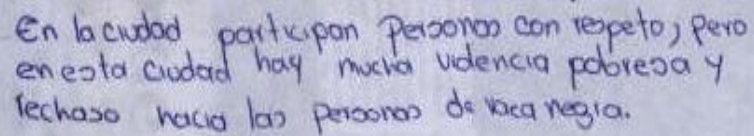 En la ciudad participan personas con respeto, pero
en esta ciudad hay mucha violencia pobresa y
rechaso hacia las personas de raca negra.